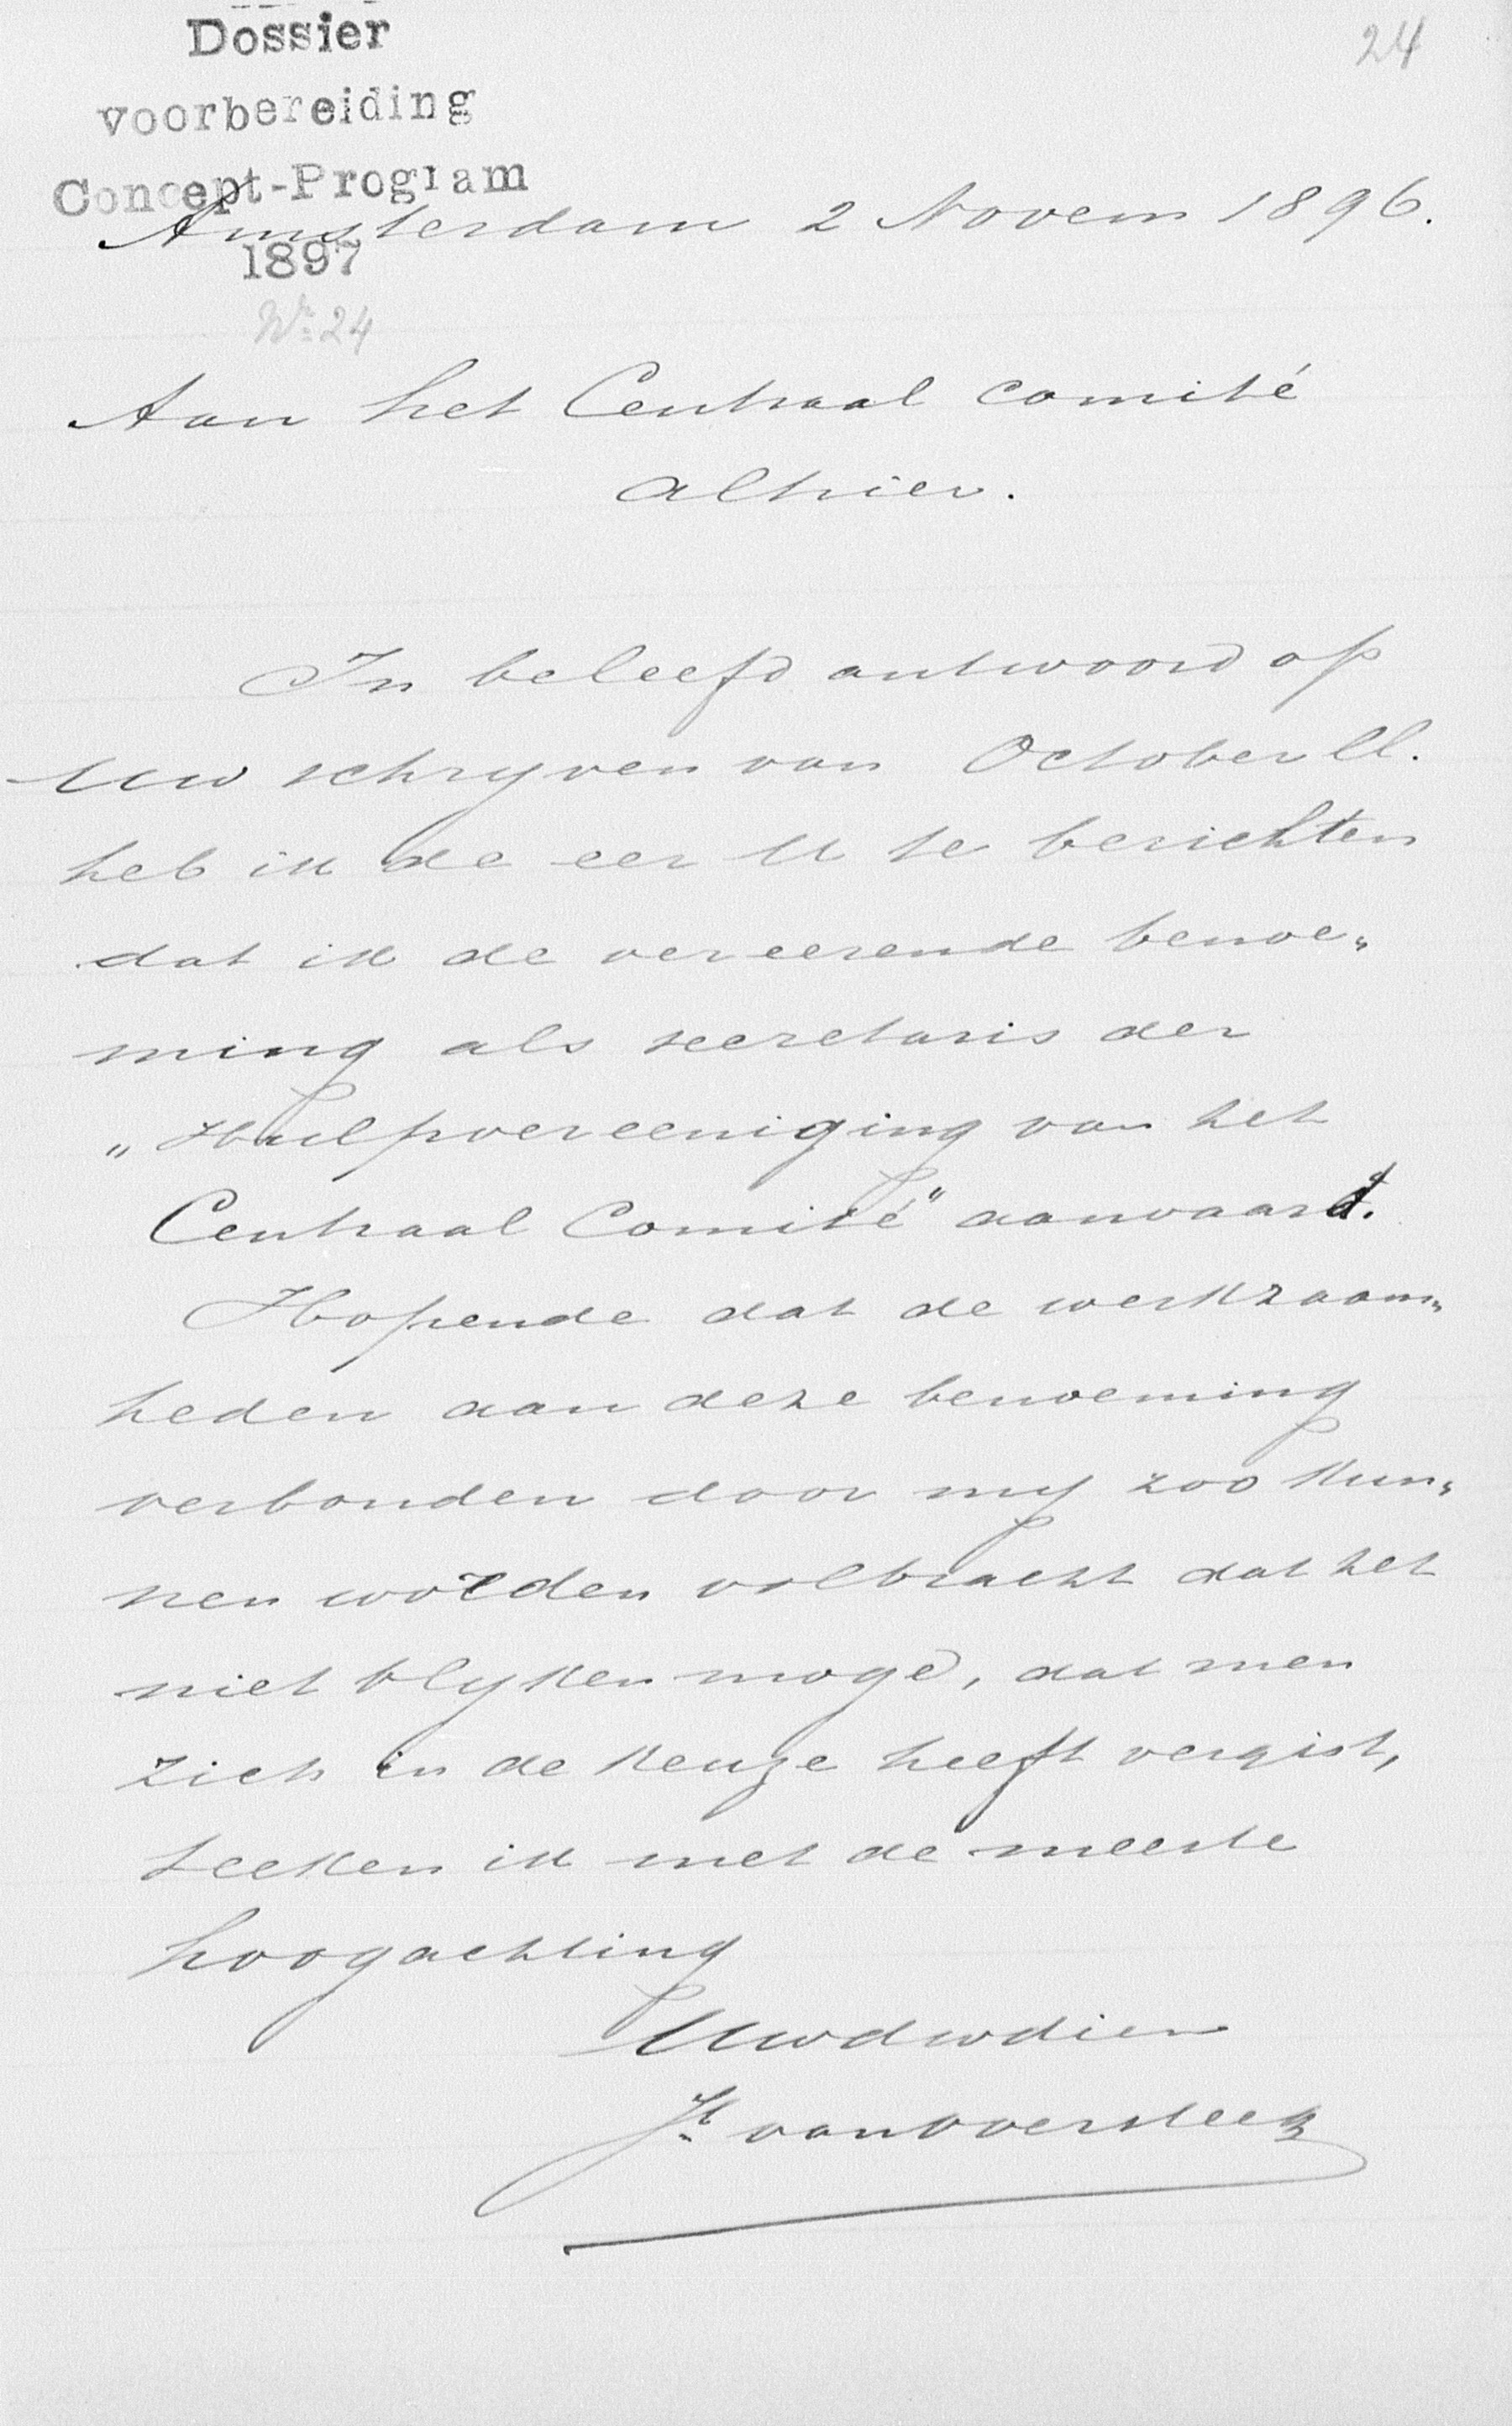 24
Dossier
voorbereiding
Concept-Program
Amsterdam 2 Novem 1896.
1897
No 24
Aan het Centraal comité
alhier.
In beleefd antwoord op
Uw schryven van October ll.
heb ik de eer U te berichten
dat ik de vereerende benoe„
ming als secretaris der
„Hulpvereeniging van het
Centraal Comité" aanvaard.
Hopende dat de werkzaam„
heden aan deze benoeming
verbonden door my zoo kun„
nen worden volbracht dat het
niet blyken moge, dat men
zich in de keuze heeft vergist,
teeken ik met de meeste
hoogachting
Uwdwdien
H. van Oversteeg